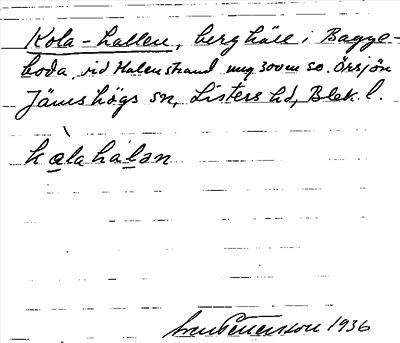 Kola-hallen, berghäll i Bagge-
boda vid Halenstrand ung 300 m so. Örsjön
Jämshögs sn, Listers hd, Blek. l.
kòlahálǝn
Sven Petersson 1936